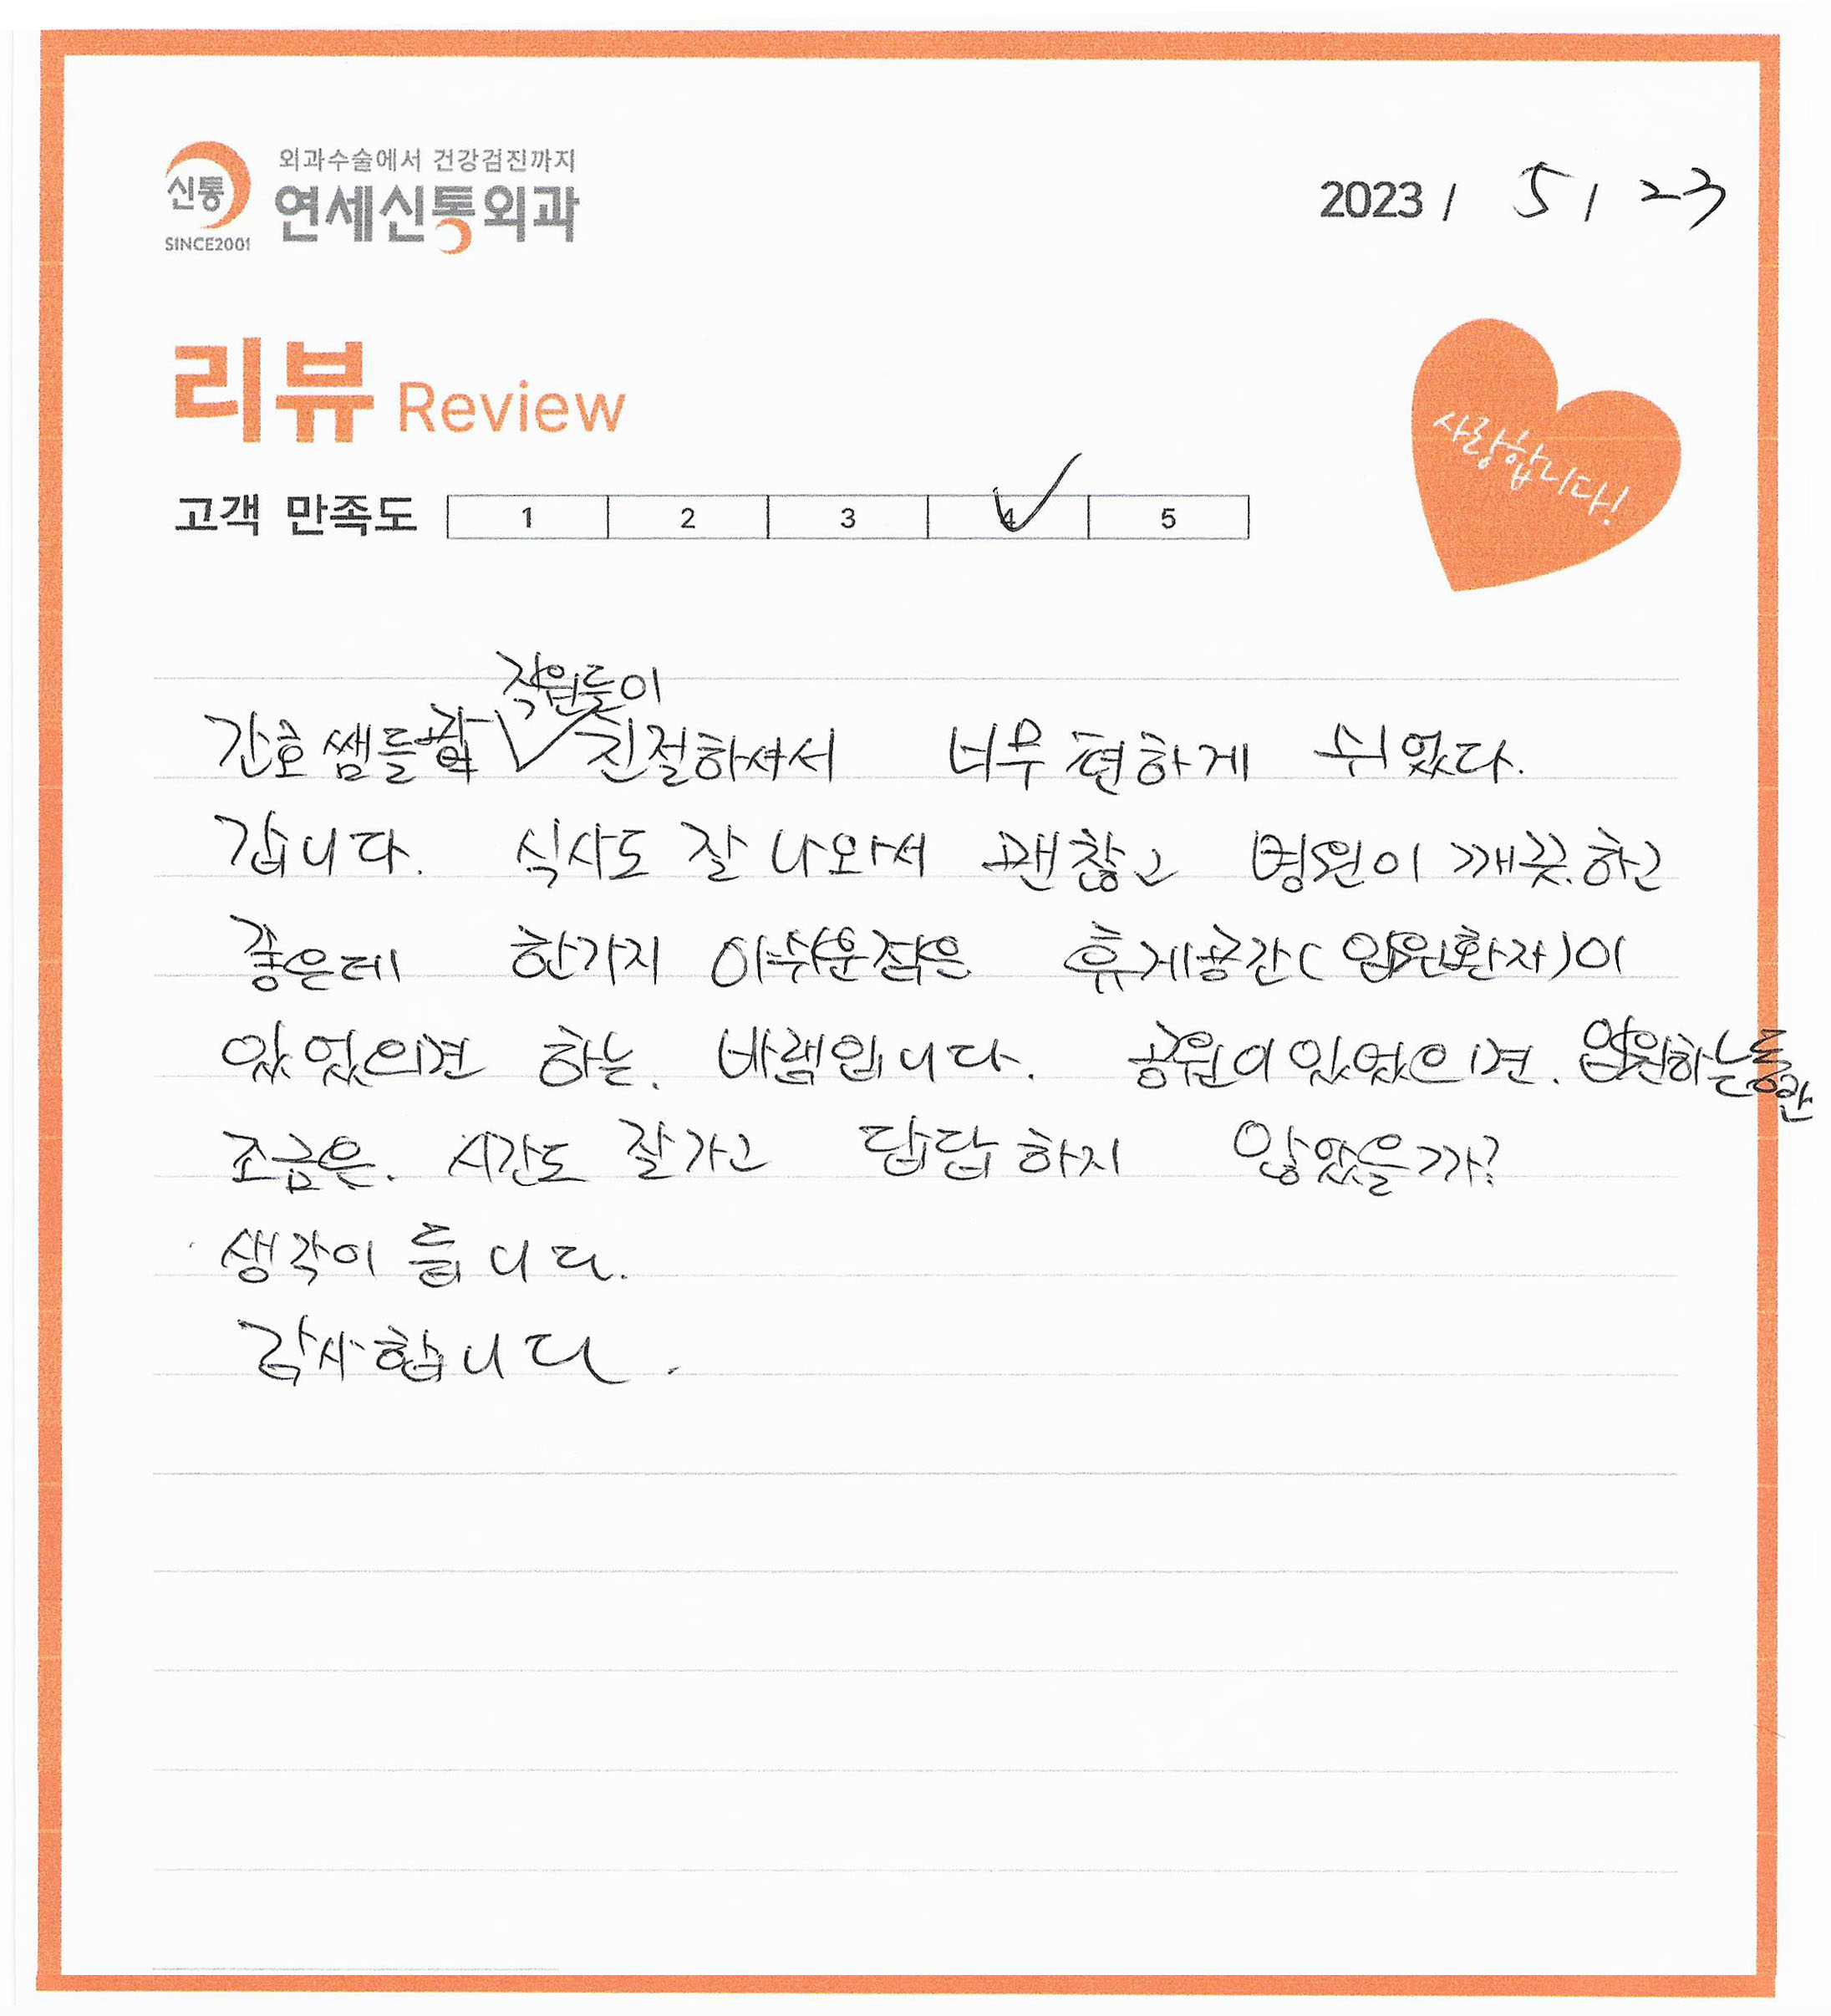 외과수술에서 건강검진까지
신통
연세신통외과
SINCE2001
2023 / 5 / 23
리뷰 Review
사랑합니다!
고객 만족도 1 2 3 4 5
직원들이
간호쌤들과 친절하셔서 너무 편하게 쉬었다.
갑니다. 식사도 잘 나와서 괜찮고 병원이 깨끗.하고
좋은데 한가지 아쉬운점은 휴게공간(입원환자)이
있었으면 하는. 바램입니다. 공원이 있었으면. 입원하는동안
조금은. 시간도 잘가고 답답하지 않았을까?
생각이 듭니다.
감사합니다.